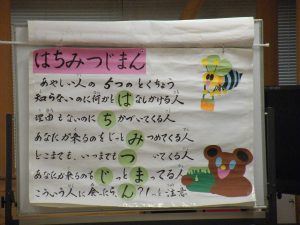 はちみつじまん
あやしい人の 5つのとくちょう
知らないのに何かとはなしかける人
理由もないのにちかづいてくる人
あなたが来るのをじーとみつめてくる人
どこまでも、いつまでもついてくる人
あなたが来るのをじっとまってる人
こういう人に会ったら、ん?!と注意